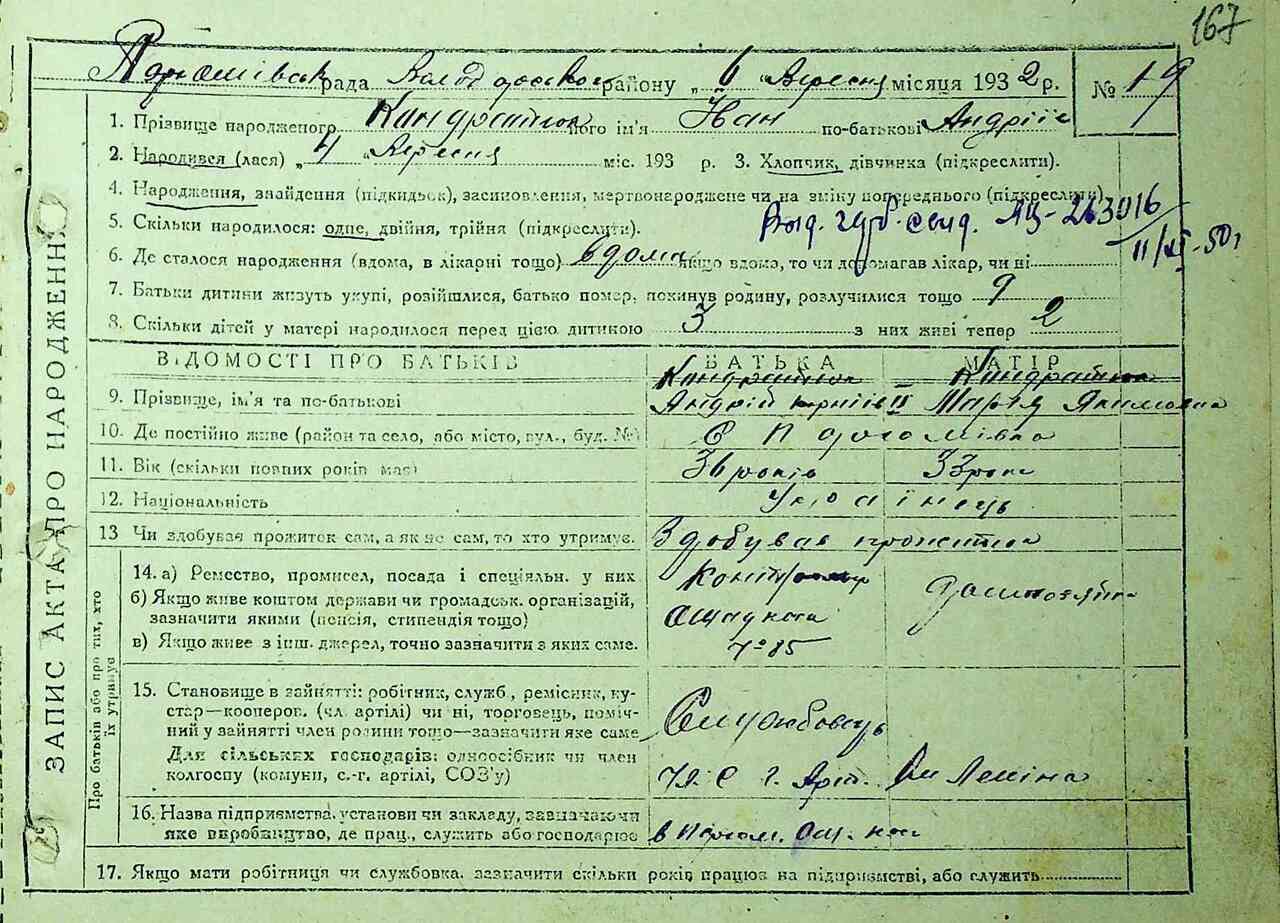 167
рада району „6 Вересня місяця 1932 р. № 19
1. Прізвище народженого Кондратюк його ім'я Іван по-батькові Андріїв
2. Народився (лася) „4 Вересня міс. 193 р. 3. Хлопчик, дівчинка (підкреслити).
4. Народження, знайдення (підкидьок), засиновлення, мертвонароджене чи на зміну попереднього (підкреслити)
5. Скільки народилося: одне, двійня, трійня (підкреслути).
11/XI-50 г
6. Де сталося народження (вдома, в лікарні тощо) вдома якщо вдома, то чи допомагав лікар, чи ні
7. Батьки дитини живуть укупі, розійшлися, батько помер, покинув родину, розлучилися тощо
8. Скільки дітей у матері народилося перед цією дитиною 3 з них живі тепер 2
ВІДОМОСТІ ПРО БАТЬКІВ БАТЬКА МАТІР
9. Прізвище, ім'я та по-батькові Андрій Марія Якимовна
10. Де постійно живе (район та село, або місто, вул., буд. №)
11. Вік (скільки повних років має) років 33 роки
12. Національність Українець
13 Чи здобуває прожиток сам, а як не сам, то хто утримує. Здобуває
14. а) Ремество, промисел, посада і спеціяльн. у них
б) Якщо живе коштом держави чи громадськ. організацій,
зазначити якими (пенсія, стипендія тощо)
в) Якщо живе з інш. джерел, точно зазначити з яких саме.
15. Становище в зайнятті: робітник, служб., ремісник, ку-
стар—кооперов. (чл. артілі) чи ні, торговець, поміч-
ний у зайнятті член родини тощо—зазначити яке саме Службовець
Для сільських господарів: одноосібник чи член
колгоспу (комуни, с.-г. артілі, СОЗ'у) Чл. С. Г. Арт. Ім Леніна
16. Назва підприємства, установи чи закладу, зазначаючи
яке виробництво, де прац., служить або господарює
17. Якщо мати робітниця чи службовка, зазначити скільки років працює на підприємстві, або служить
ЗАПИС АКТА ПРО НАРОДЖЕННЯ
Про батьків або про тих, хто
їх утримує